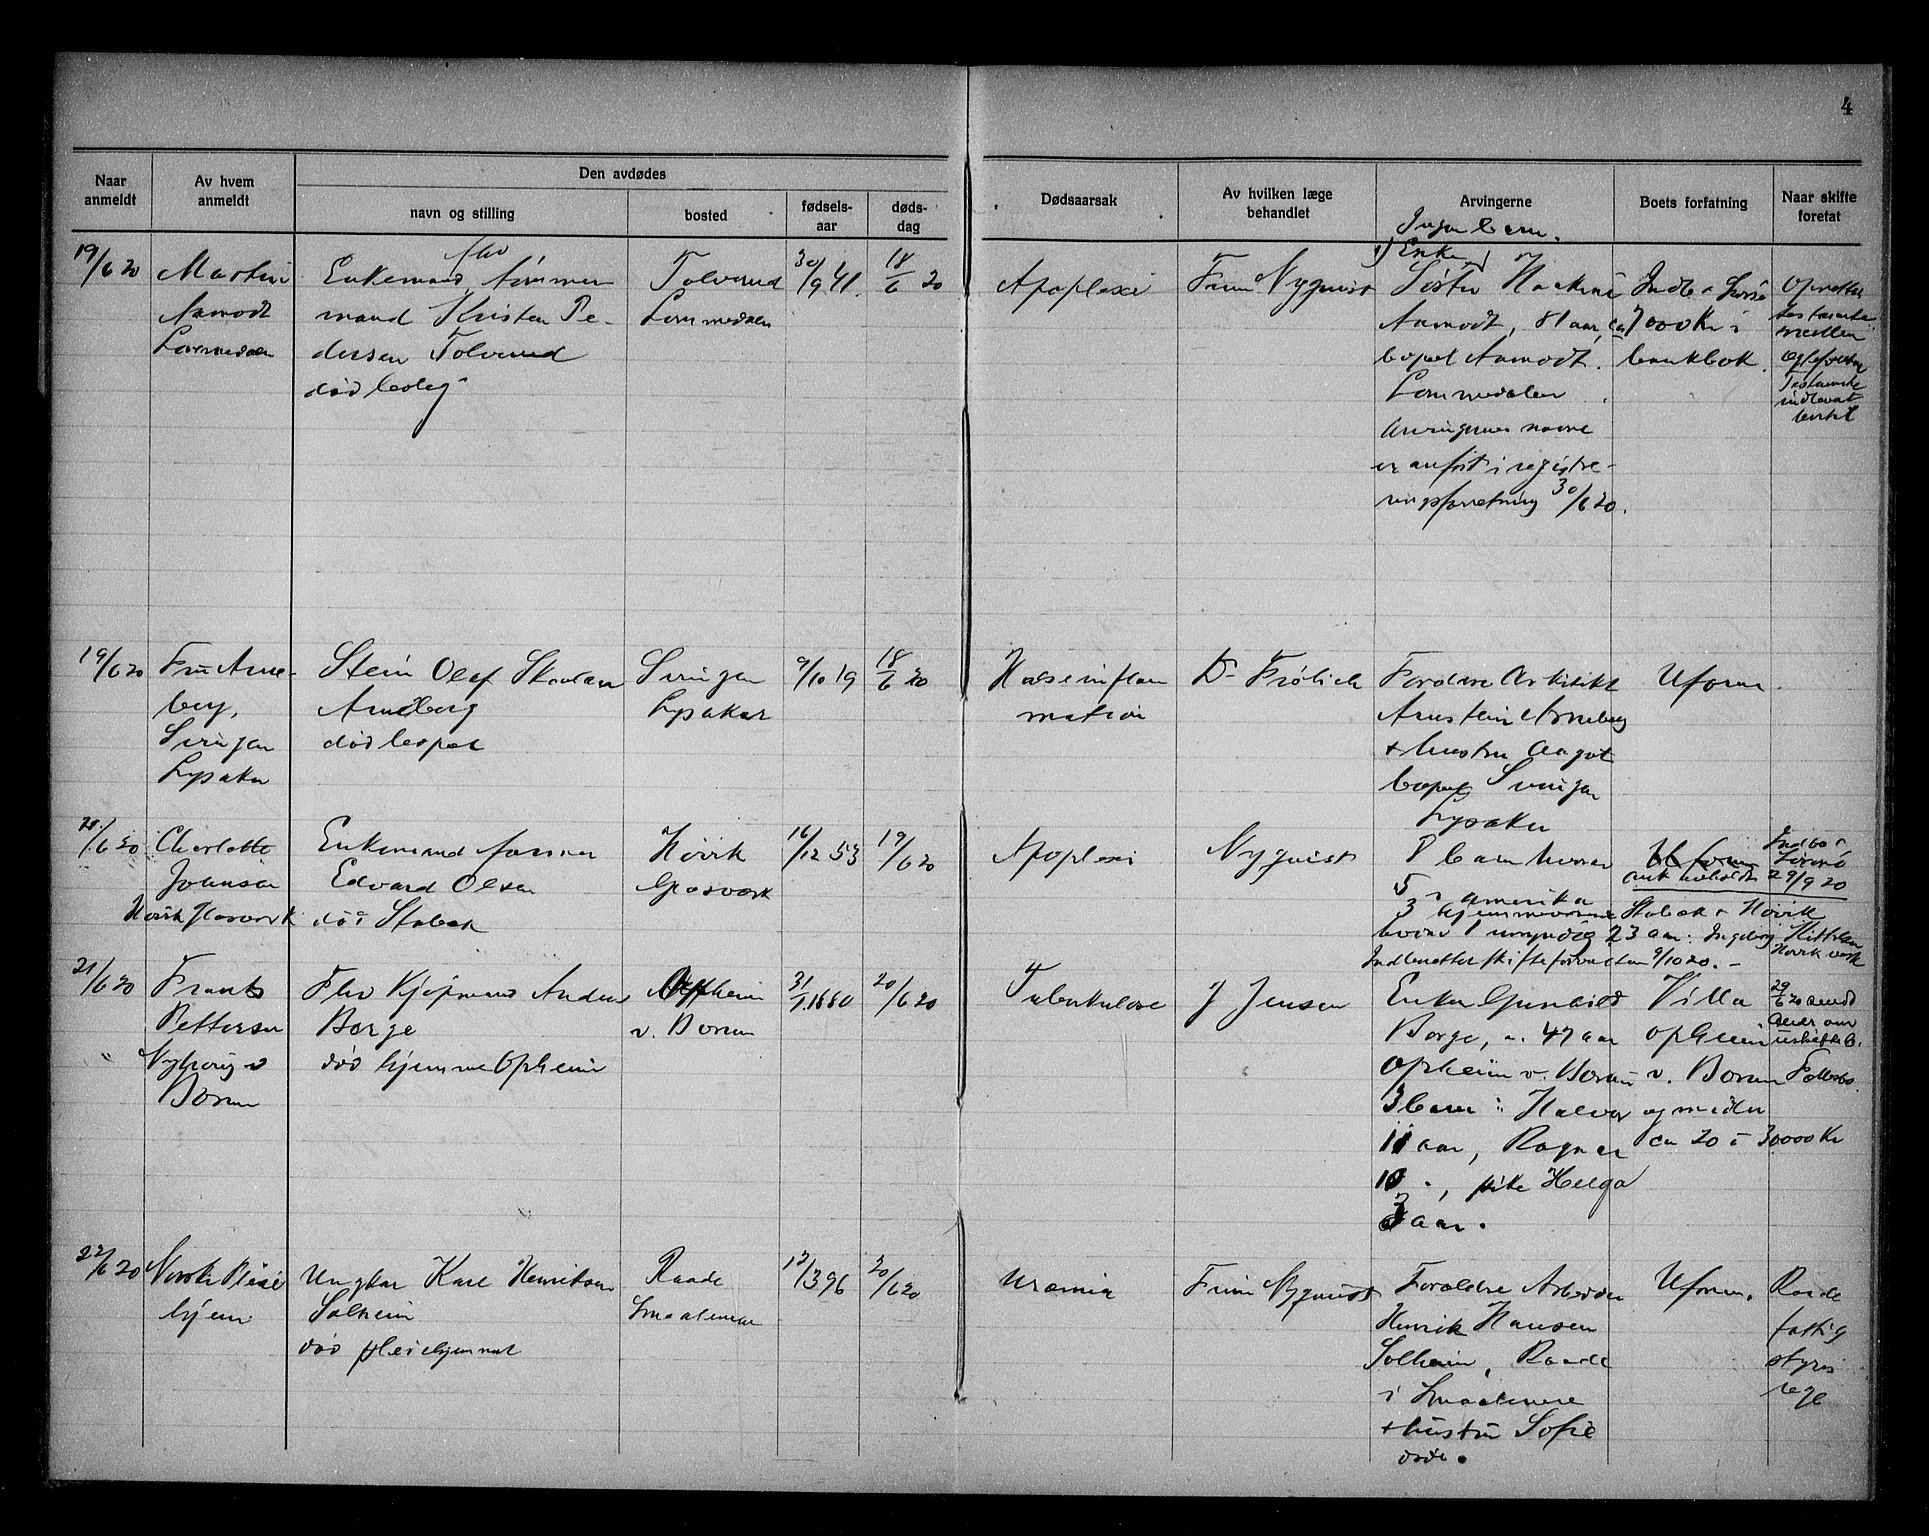 4
Den avdødes
Naar anmeldt
Av hvem anmeldt
navn og stilling
bosted
fødsels-aar
døds-dag
Dødsaarsak
Av hvilken læge behandlet
Arvingerne
Boets forfatning
Naar skifte foretat
19/6 20
Martin
Aamodt
Lommedalen
fhv
Enkemand, tømmer
mand Kristen Pe-
dersen Tolverud
død bolig
Tolverud
Lommedalen
30/9 41.
18/6 20
Apoplexi
Finn Nyquist
Ingen barn.
Enke
Søster
Aamodt, 81 aar,
bopæl Aamodt.
Lommedalen
Arvingernes navne
er anført i registre-
ringsforretning 30/6 20.
Indbo
7000 Kr i
bankbok.
Oprettet
testamente
mellem
Testamente
19/6 20
Fru Arne-
berg,
Lysaker
Stein Olaf
Arneberg
død bopæl
Lysaker
9/10 19
18/6 20
Halsinflam
mation
Dr Frölich
Forældre Arkitekt
Arnstein Arneberg
+ hustru Aagot
bopæl
Lysaker
Uform.
/6 20
Charlotte
Johnsen
Høvik Glasverk
Enkemand
Edvard Olsen
død Stabæk
Høvik
Glasværk
16/12 53
19/6 20
Apoplexi
Nyquist
8 barn hvorav
5 i Amerika
3 hjemmeværende Stabæk + Høvik
1 umyndig 23 aar: Ingeborg
9/10 20. -
Uform
Indbo
Løsøre
29/9 20
Høvik verk
21/6 20
Frants
Pettersen
Nyborg v
Borum
Fhv Kjøpmand Anders
Borge
død hjemme Opheim
Opheim
v. Borum
31/1.1880
20/6 20
Tuberkulose
J Jensen
Enke Gunhild
Borge, 47 aar
Opheim v. Borum
3 barn: Halvor
11 aar, Ragnar
10 -, pike Helga
3 aar.
Villa
Opheim
v. Borum
og midler
ca 20 à 30000 Kr
29/6 20 sendt
om
uskifte b.
Fællesbo.
22/6 20
Norske Pleie
hjem
Ungkar Karl Henriksen
Solheim
død pleiehjemmet
Raade
Smaalenene
12/3 96
20/6 20
Uræmia
Finn Nyquist
Forældre Arbeider
Henrik Hansen
Solheim, Raade
i Smaalenene
+ hustru Sofie
døde.
Uform.
Raade
fattig
styre